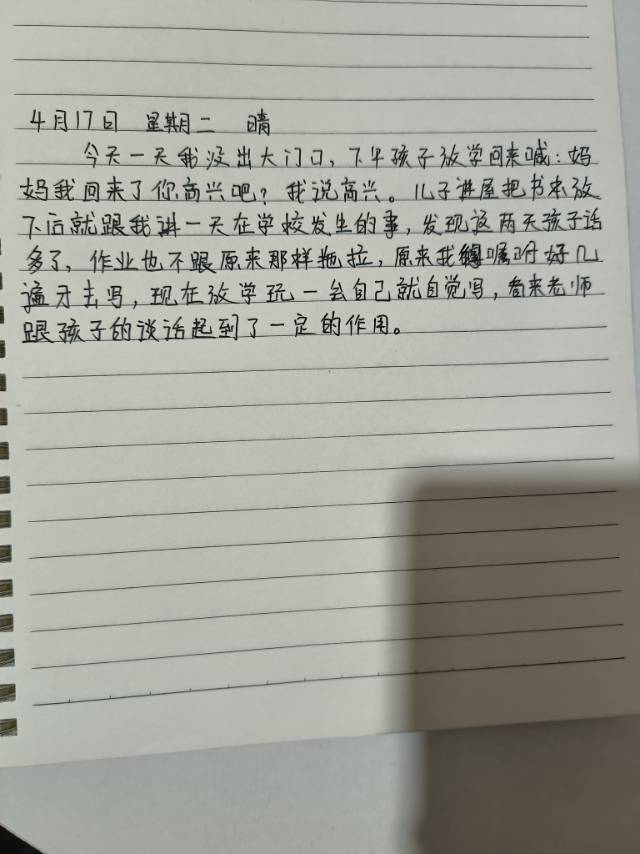 4月17日 星期二 晴
今天一天我没出大门口，下午孩子放学回来喊：妈
妈我回来了你高兴吧？我说高兴。儿子进屋把书本放
下后就跟我讲一天在学校发生的事，发现这两天孩子话
多了，作业也不跟原来那样拖拉，原来我得嘱咐好几
遍才去写，现在放学玩一会自己就自觉写，看来老师
跟孩子的谈话起到了一定的作用。